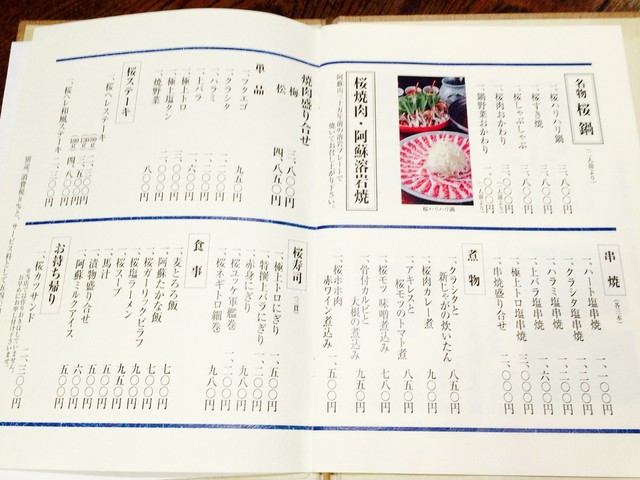 名物 桜鍋
一、桜ハリハリ鍋 三、八〇〇円
一、桜すき焼 三、八〇〇円
一、桜しゃぶしゃぶ 三、八〇〇円
一、桜肉おかわり
一、鍋野菜おかわり
桜ハリハリ鍋
桜焼肉・阿蘇溶岩焼
焼いてお召し上がり下さい。
焼肉盛り合せ
梅 三、八〇〇円
松 四、八〇〇円
単品
一、フタエゴ 九五〇円
一、クラシタ
一、ハラミ
一、上バラ
一、極上トロ
一、極上塩タン
一、焼野菜 八〇〇円
桜ステーキ
一、桜ヘレステーキ
一、桜ヘレ和風ステーキ
串焼
一、ハート塩串焼 一、一〇〇円
一、ハラミ塩串焼 一、二〇〇円
一、クラシタ塩串焼 一、二〇〇円
一、上バラ塩串焼 一、六〇〇円
一、極上トロ塩串焼 三、〇〇〇円
一、串焼盛り合せ 二、〇〇〇円
煮物
一、クラシタと
新じゃがの炊いたん 八五〇円
一、桜肉カレー煮 九〇〇円
一、アキレスと
桜モツのトマト煮 八五〇円
一、桜モツ味噌煮込み 七八〇円
一、骨付カルビと
大根の煮込み 九八〇円
一、桜ホホ肉
赤ワイン煮込み 一、五〇〇円
桜寿司 (二貫)
一、極上トロにぎり 一、五〇〇円
一、特撰上バラにぎり 一、二〇〇円
一、赤身にぎり 九八〇円
一、桜ユッケ軍艦巻 一、二〇〇円
一、桜ネギトロ細巻 九八〇円
食事
一、麦とろろ飯 七〇〇円
一、阿蘇たかな飯 七〇〇円
一、桜ガーリックピラフ 九五〇円
一、桜塩ラーメン 九五〇円
一、桜スープ 五〇〇円
一、馬汁 五〇〇円
一、漬物盛り合せ 六〇〇円
一、阿蘇ミルクアイス 五〇〇円
お持ち帰り
一、桜カツサンド 二、三〇〇円